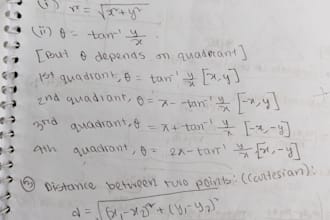 (i) r² = √x²+y²
(ii) θ = tan⁻¹ y/x
[But θ depends on quadrant]
1st quadrant, θ = tan⁻¹ y/x [x,y]
2nd quadrant, θ = π - tan⁻¹ y/x [-x,y]
3rd quadrant, θ = π + tan⁻¹ y/x [-x,-y]
4th quadrant, θ = 2π - tan⁻¹ y/x [x,-y]
Distance between two points: (Cartesian):
d = √(x₁-x₂)² + (y₁-y₂)²